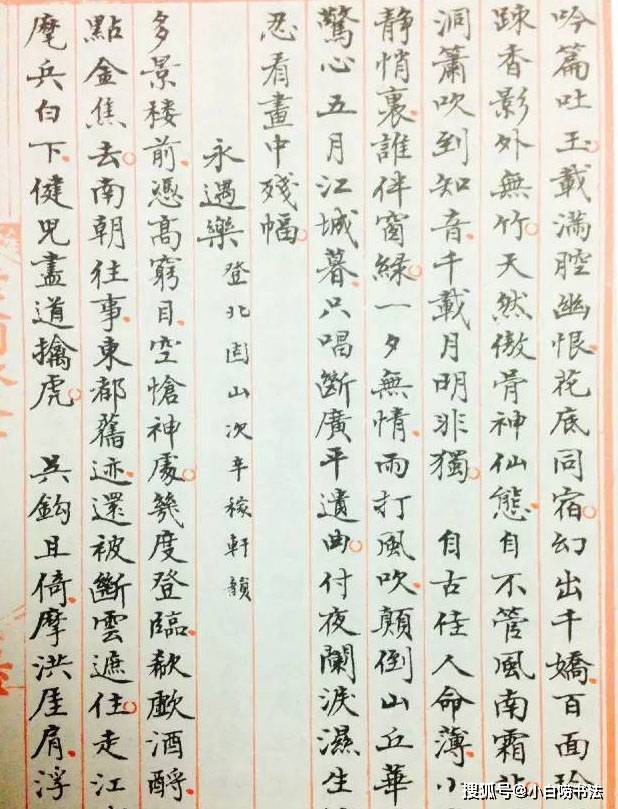 吟篇吐玉載滿腔幽恨花底同宿幻出千嬌百面
踈香影外無竹天然傲骨神仙態自不管風南霜
洞簫吹到知音千載月明非獨 自古佳人命薄小
靜悄裏誰伴窗綠一夕無情雨打風吹顛倒山丘華
驚心五月江城暮只唱斷廣平遺曲付夜闌淚濕生
忍看畫中殘幅
永遇樂 登北固山次辛稼軒韻
多景楼前憑高窮目空愴神處幾度登臨欷歔酒酹
點金焦去南朝往事東都舊迹還被斷雲遮住走江
麾兵白下健児盡道擒虎 吳鈎且倚摩洪厓肩浮
搜狐号@小白唠书法